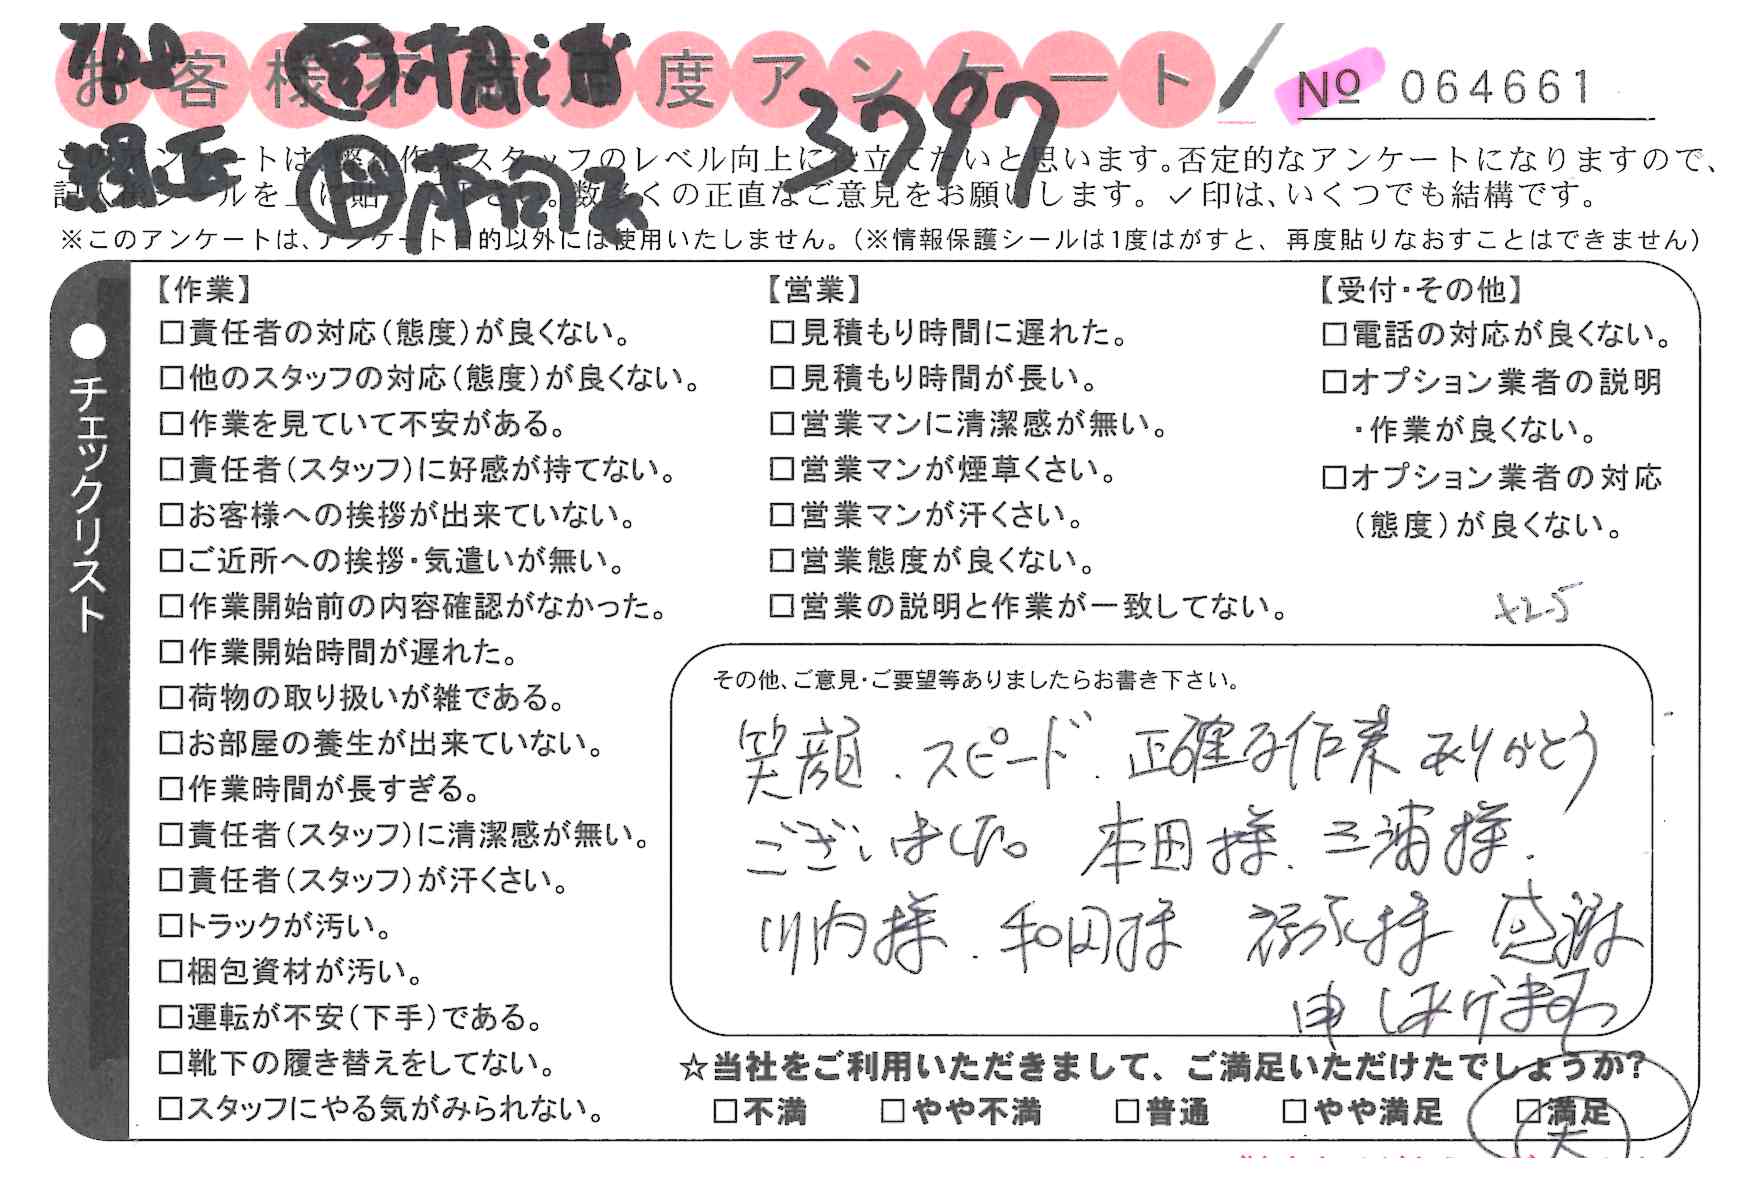 お客様不満足度アンケート
№ 064661
3797
このアンケートは、弊社作業スタッフのレベル向上に役立てたいと思います。否定的なアンケートになりますので、
記入後シールを上に貼って下さい。数多くの正直なご意見をお願いします。✓印は、いくつでも結構です。
※このアンケートは、アンケート目的以外には使用いたしません。（※情報保護シールは1度はがすと、再度貼りなおすことはできません）
●チェックリスト
【作業】
□責任者の対応（態度）が良くない。
□他のスタッフの対応（態度）が良くない。
□作業を見ていて不安がある。
□責任者（スタッフ）に好感が持てない。
□お客様への挨拶が出来ていない。
□ご近所への挨拶・気遣いが無い。
□作業開始前の内容確認がなかった。
□作業開始時間が遅れた。
□荷物の取り扱いが雑である。
□お部屋の養生が出来ていない。
□作業時間が長すぎる。
□責任者（スタッフ）に清潔感が無い。
□責任者（スタッフ）が汗くさい。
□トラックが汚い。
□梱包資材が汚い。
□運転が不安（下手）である。
□靴下の履き替えをしてない。
□スタッフにやる気がみられない。
【営業】
□見積もり時間に遅れた。
□見積もり時間が長い。
□営業マンに清潔感が無い。
□営業マンが煙草くさい。
□営業マンが汗くさい。
□営業態度が良くない。
□営業の説明と作業が一致してない。
【受付・その他】
□電話の対応が良くない。
□オプション業者の説明
・作業が良くない。
□オプション業者の対応
（態度）が良くない。
その他、ご意見・ご要望等ありましたらお書き下さい。
笑顔、スピード、正確な作業ありがとう
ございました。本田様、三浦様、
川内様、和田様 福永様 感謝
申し上げます
☆当社をご利用いただきまして、ご満足いただけたでしょうか？
□不満 □やや不満 □普通 □やや満足 □満足
大